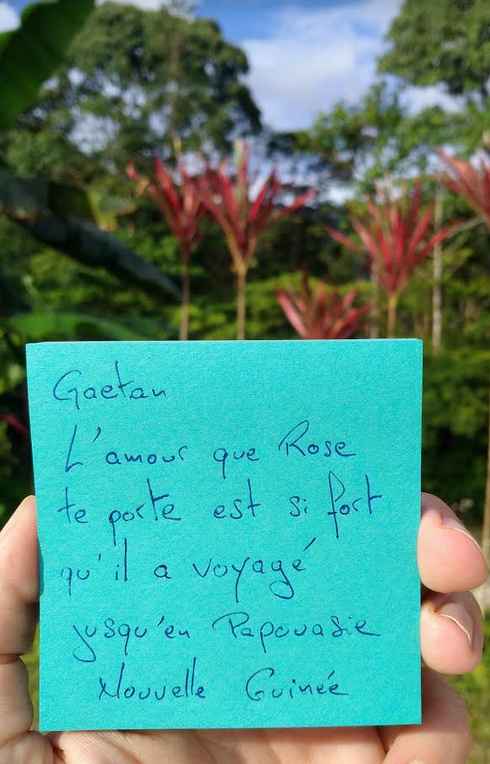 Gaetan
L'amour que Rose
te porte est si fort
qu'il a voyagé
jusqu'en Papouasie
Nouvelle Guinée